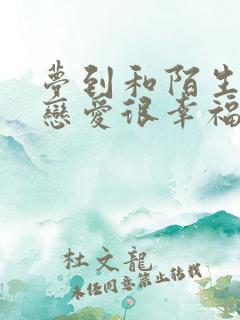 夢到和陌生
戀愛很幸福
杜文龍
未经同意禁止转载